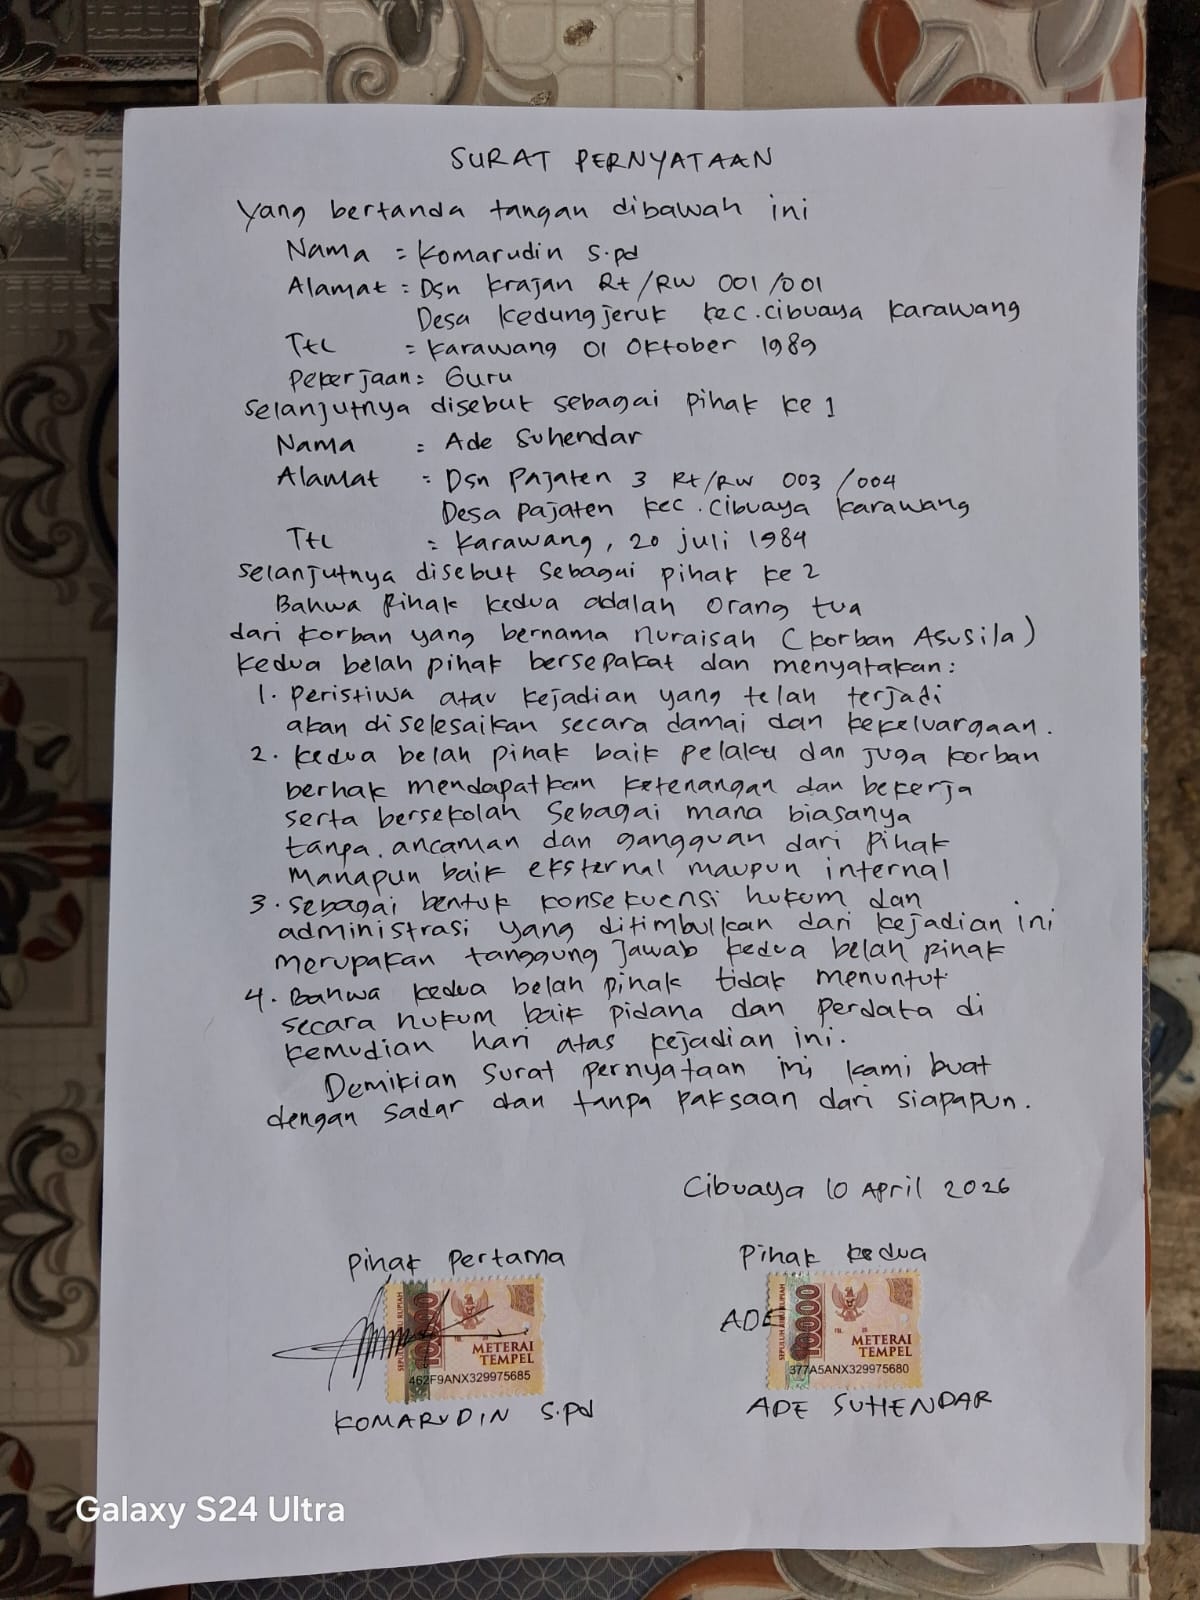 SURAT PERNYATAAN
Yang bertanda tangan dibawah ini
Nama = Komarudin S.pd
Alamat = Dsn Krajan Rt/RW 001/001
Desa Kedungjeruk kec.cibuaya Karawang
Ttl = Karawang 01 Oktober 1989
Pekerjaan = Guru
Selanjutnya disebut sebagai pihak ke 1
Nama = Ade Suhendar
Alamat = Dsn Pajaten 3 Rt/RW 003/004
Desa Pajaten Kec.Cibuaya Karawang
Ttl = Karawang, 20 juli 1984
Selanjutnya disebut Sebagai pihak ke 2
Bahwa Pihak Kedua adalah Orang tua
dari korban yang bernama nuraisah (korban Asusila)
Kedua belah pihak bersepakat dan menyatakan:
1. Peristiwa atau kejadian yang telah terjadi
akan diselesaikan secara damai dan kekeluargaan.
2. Kedua belah pihak baik pelaku dan juga korban
berhak mendapatkan ketenangan dan bekerja
serta bersekolah Sebagai mana biasanya
tanpa.ancaman dan gangguan dari Pihak
Manapun baik eksternal maupun internal
3. Sebagai bentuk konsekuensi hukum dan
administrasi yang ditimbulkan dari kejadian ini
merupakan tanggung Jawab kedua belah pihak
4. Bahwa kedua belah pihak tidak menuntut
secara hukum baik pidana dan perdata di
kemudian hari atas kejadian ini.
Demikian Surat pernyataan ini kami buat
dengan sadar dan tanpa paksaan dari siapapun.
Cibuaya 10 April 2026
Pihak Pertama
Pihak Kedua
SEPULUH RIBU RUPIAH
10000
METERAI
TEMPEL
462F9ANX329975685
ADE
10000
METERAI
TEMPEL
377A5ANX329975680
KOMARUDIN S.pd
ADE SUHENDAR
Galaxy S24 Ultra